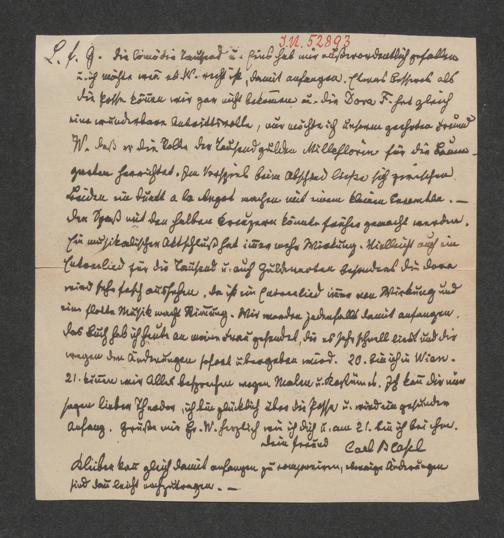 I.N. 52893
L. f. G. Die Comödie Tausend u. Eins hat mir außerordentlich gefallen
u. ich möchte wenn es W. recht ist, damit anfangen. Etwas Besseres als
die Posse können wir gar nicht bekommen u. die Dora F. hat gleich
eine wunderbare Antrittsrolle, nur möchte ich unsern geehrten Freund
W. daß er die Rolle der Tausendgulden Millefloria für die
herrichtet. Im Vorspiel beim Abschied ließe sich zwischen
Beiden ein Duett a la Angot machen mit einem kleinen —
Der Spaß mit den halben Kreuzern könnte früher gemacht werden.
Ein musikalischer Aktschluß hat immer mehr Wirkung. Vielleicht auch ein
Entreelied für die Tausend u. auch Guldennoten besonders die Dora
wird sehr fesch aussehen, da ist ein Entreelied immer von Wirkung und
eine flotte Musik macht Stimmung. Wir werden jedenfalls damit anfangen.
Das Buch hab ich heute an meine Frau gesendet, die es sehr schnell liest und die
wegen den Änderungen sofort übergeben wird. 20. bin ich in Wien.
21. können wir Alles besprechen wegen Malen u. Kostümes. Ich kann dir nur
sagen lieber Theodor, ich bin glücklich über die Posse u. wird ein gesunder
Anfang. Grüße mir Hr. W. herzlich wie ich dich u. am 21. bin ich bei ihm.
Dein Freund Carl Blasel
Kleiber kann gleich damit anfangen zu componiren, einige Änderungen
sind dann leicht nachzutragen. —